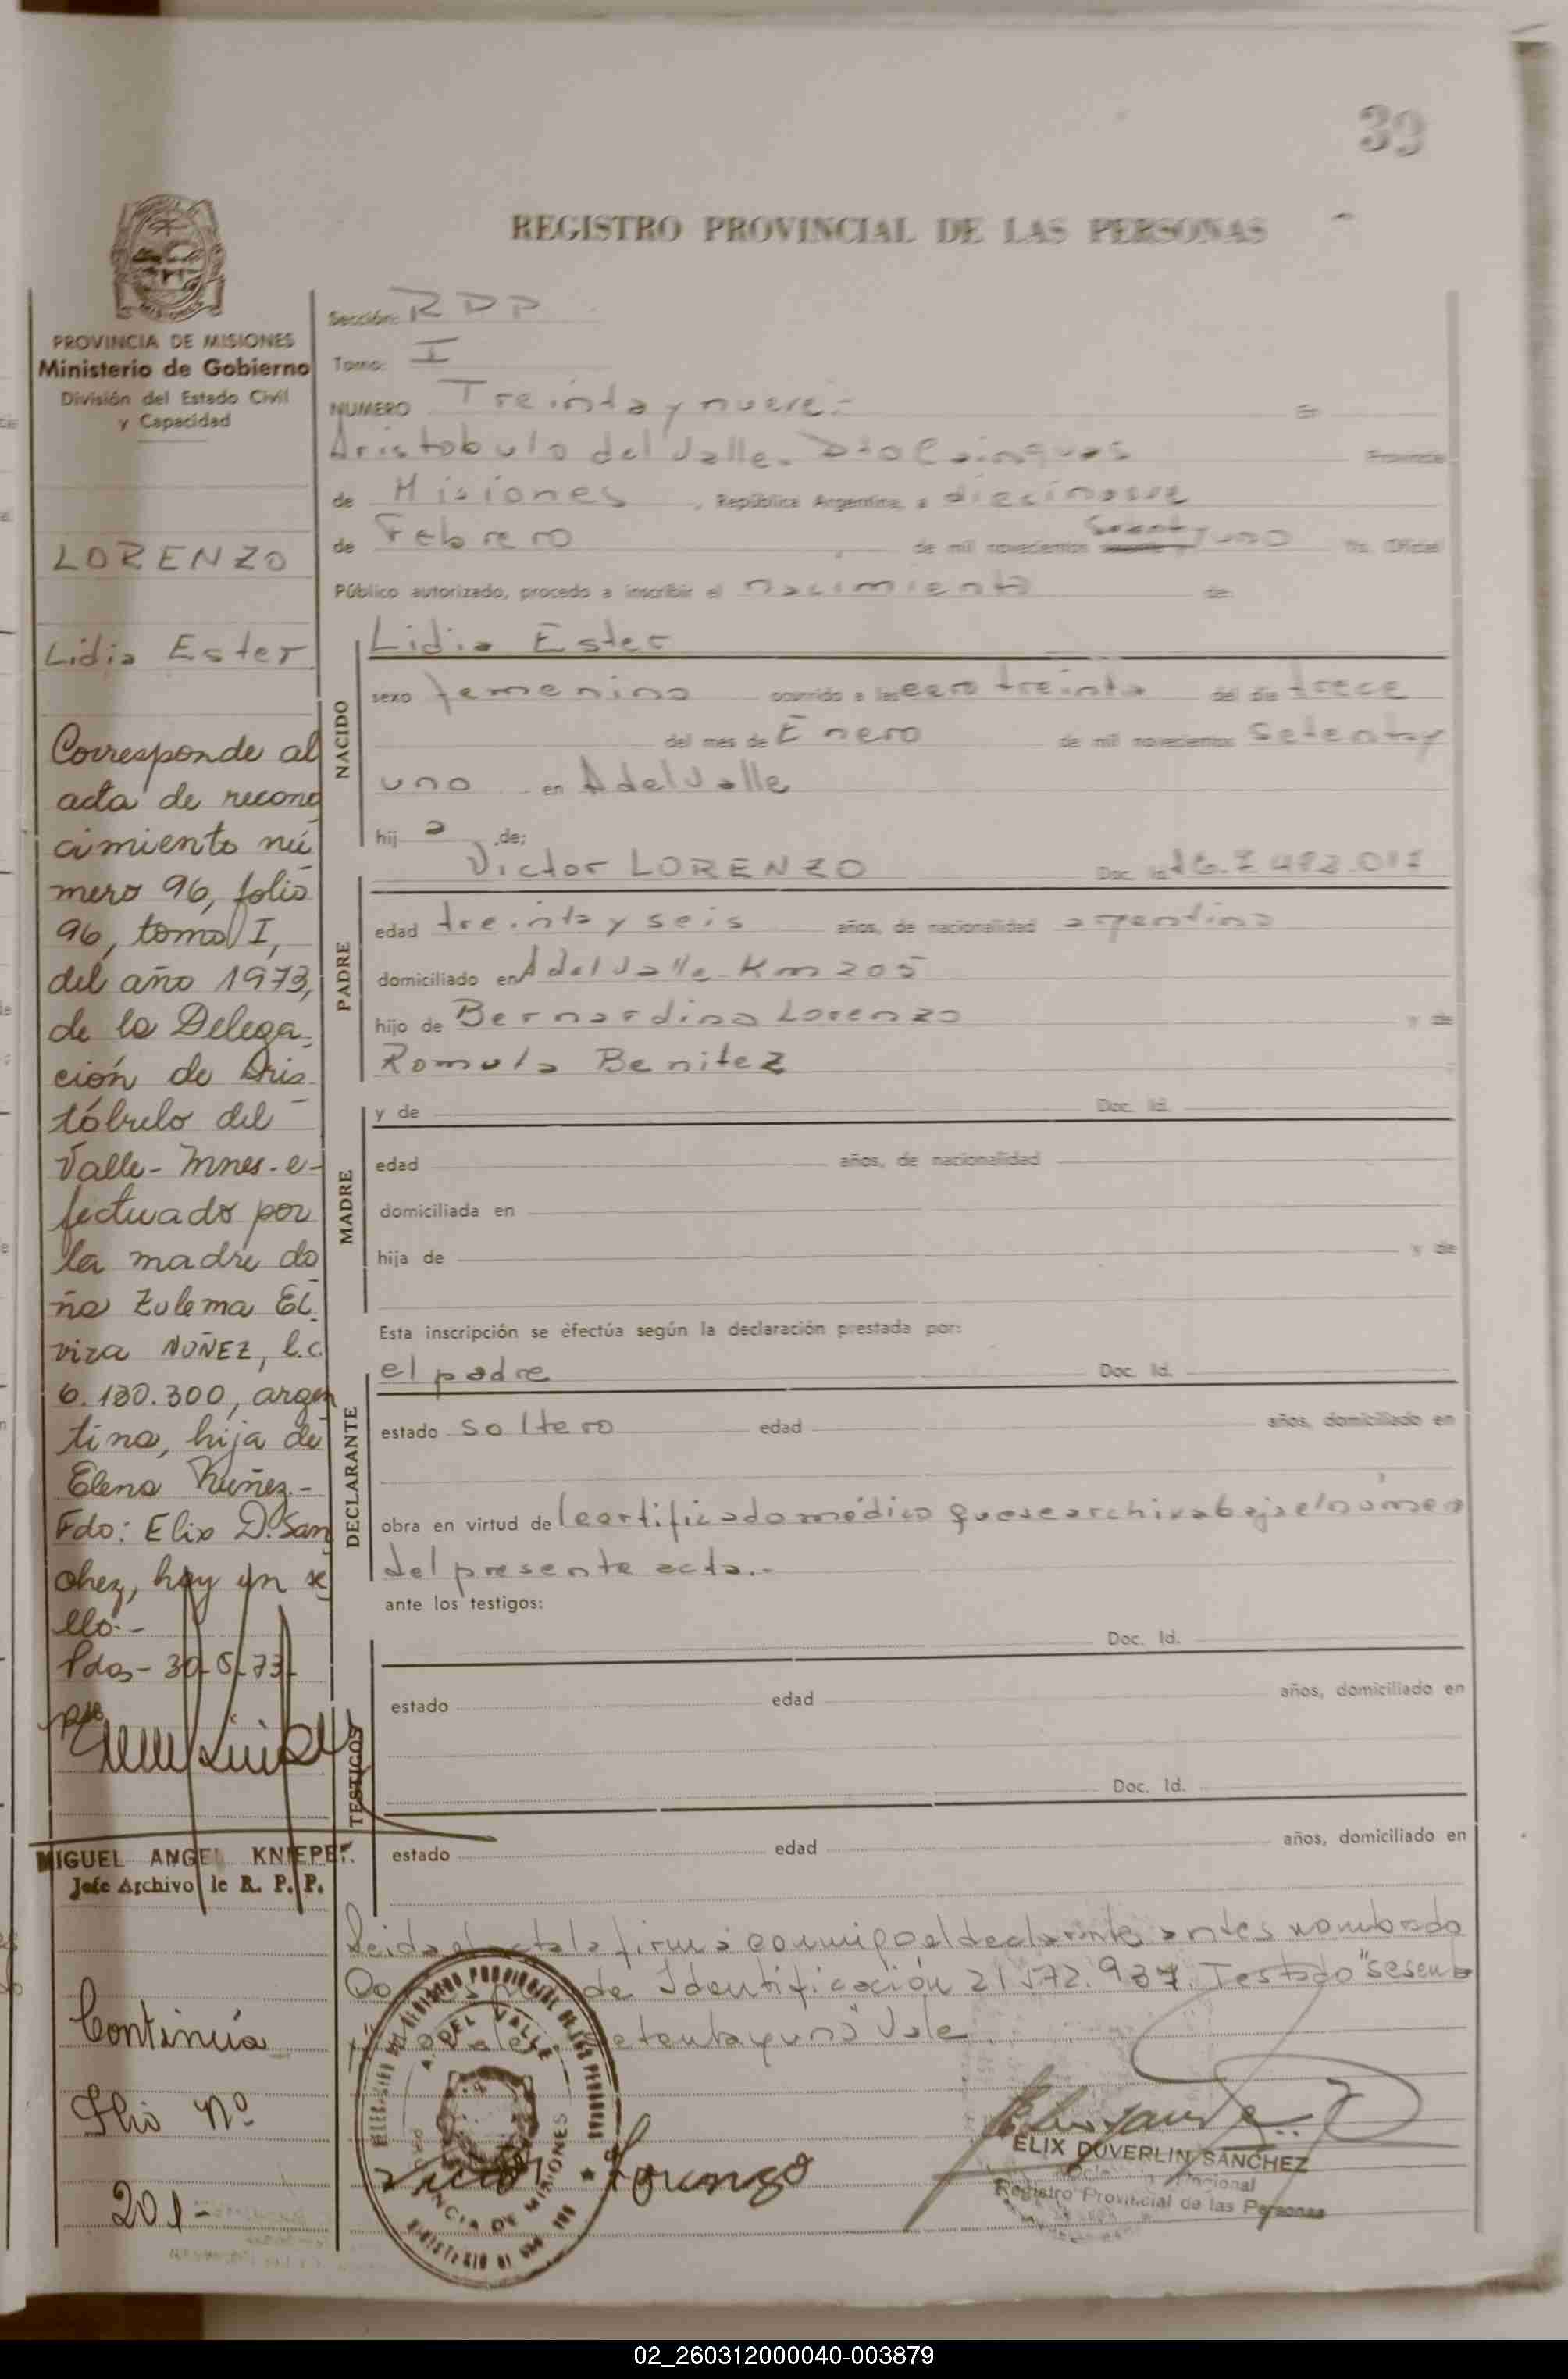 39
REGISTRO PROVINCIAL DE LAS PERSONAS
PROVINCIA DE MISIONES
Ministerio de Gobierno
División del Estado Civil
y Capacidad
LORENZO
Lidia Ester
Corresponde al
acta de recono
cimiento nú
mero 96, folio
96, tomo I,
del año 1973,
de la Delega-
ción de Aris
tóbulo del
Valle - Mnes - e-
fectuado por
la madre do
ña Zulema El
vira NUÑEZ, l.c.
6.130.300, argen
tina, hija de
Elena Nuñez.-
Fdo: Elix D. San
chez, hay un se
llo.-
Pdas - 30-5-73-
MIGUEL ANGEL KNIEPE
Jefe Archivo de R. P. P.
Continúa
Flio Nº
201-
Sección: RDP
Tomo: I
NUMERO Treinta y nueve.- En
Aristobulo del Valle. Dto Cainguas Provincia
de Misiones, República Argentina, a diecinueve
de Febrero de mil novecientos setenta y uno Yo, Oficial
Público autorizado, procedo a inscribir el nacimiento de:
NACIDO
Lidia Ester
sexo femenino ocurrido a las cero treinta del día trece
del mes de Enero de mil novecientos setenta y
uno en A del Valle
hij a de;
PADRE
Victor LORENZO Doc. Id.
edad treinta y seis años, de nacionalidad argentino
domiciliado en A del Valle Km 205
hijo de Bernardino Lorenzo y de
Romula Benitez
MADRE
y de Doc. Id.
edad años, de nacionalidad
domiciliada en
hija de y de
Esta inscripción se efectúa según la declaración prestada por:
DECLARANTE
el padre Doc. Id.
estado soltero edad años, domiciliado en
obra en virtud del certificado médico que se archiva bajo el número
del presente acta.-
ante los testigos:
TESTIGOS
Doc. Id.
estado edad años, domiciliado en
Doc. Id.
estado edad años, domiciliado en
Leida el acta la firma conmigo el declarante antes nombrado
de Identificación 21572.937. Testado "sesenta
setenta y uno" Vale
A. DEL VALLE
PROVINCIA DE MISIONES
Victor Lorenzo
ELIX DUVERLIN SANCHEZ
Registro Provincial de las Personas
02_260312000040-003879